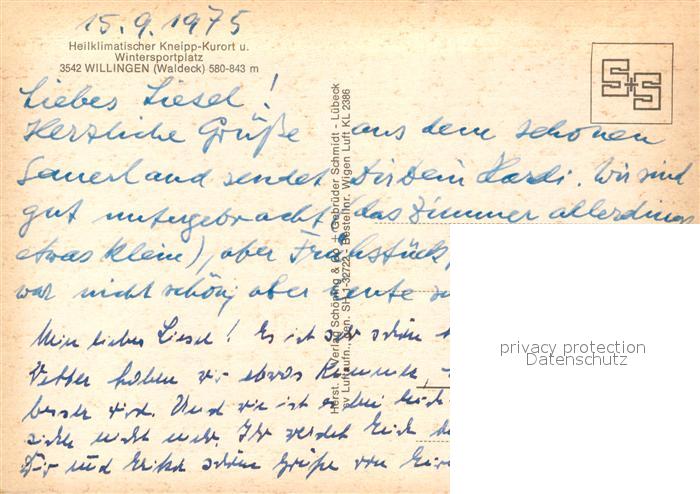 15.9.1975
Heilklimatischer Kneipp-Kurort u.
Wintersportplatz
3542 WILLINGEN (Waldeck) 580-843 m
S+S
Liebes Liesel!
Herzliche Grüße aus dem schönen
Sauerland sendet Dir Dein Hardi. Wir sind
gut untergebracht (das Zimmer allerdings
etwas klein), aber Frühstück,
war nicht schön, aber heute
Mein liebes Liesel! Es ist sehr schön
Wetter haben wir etwas Kummer,
besser wird. Und wie ist es bei euch
nicht mehr. Ihr werdet Euch
Dir und schöne Grüße von
Herst. Verlag Schöning & Co + Gebrüder Schmidt - Lübeck
Luftaufn. Gen. SH 1-32722 - Bestellnr. Wigen Luft KL 2386
privacy protection
Datenschutz